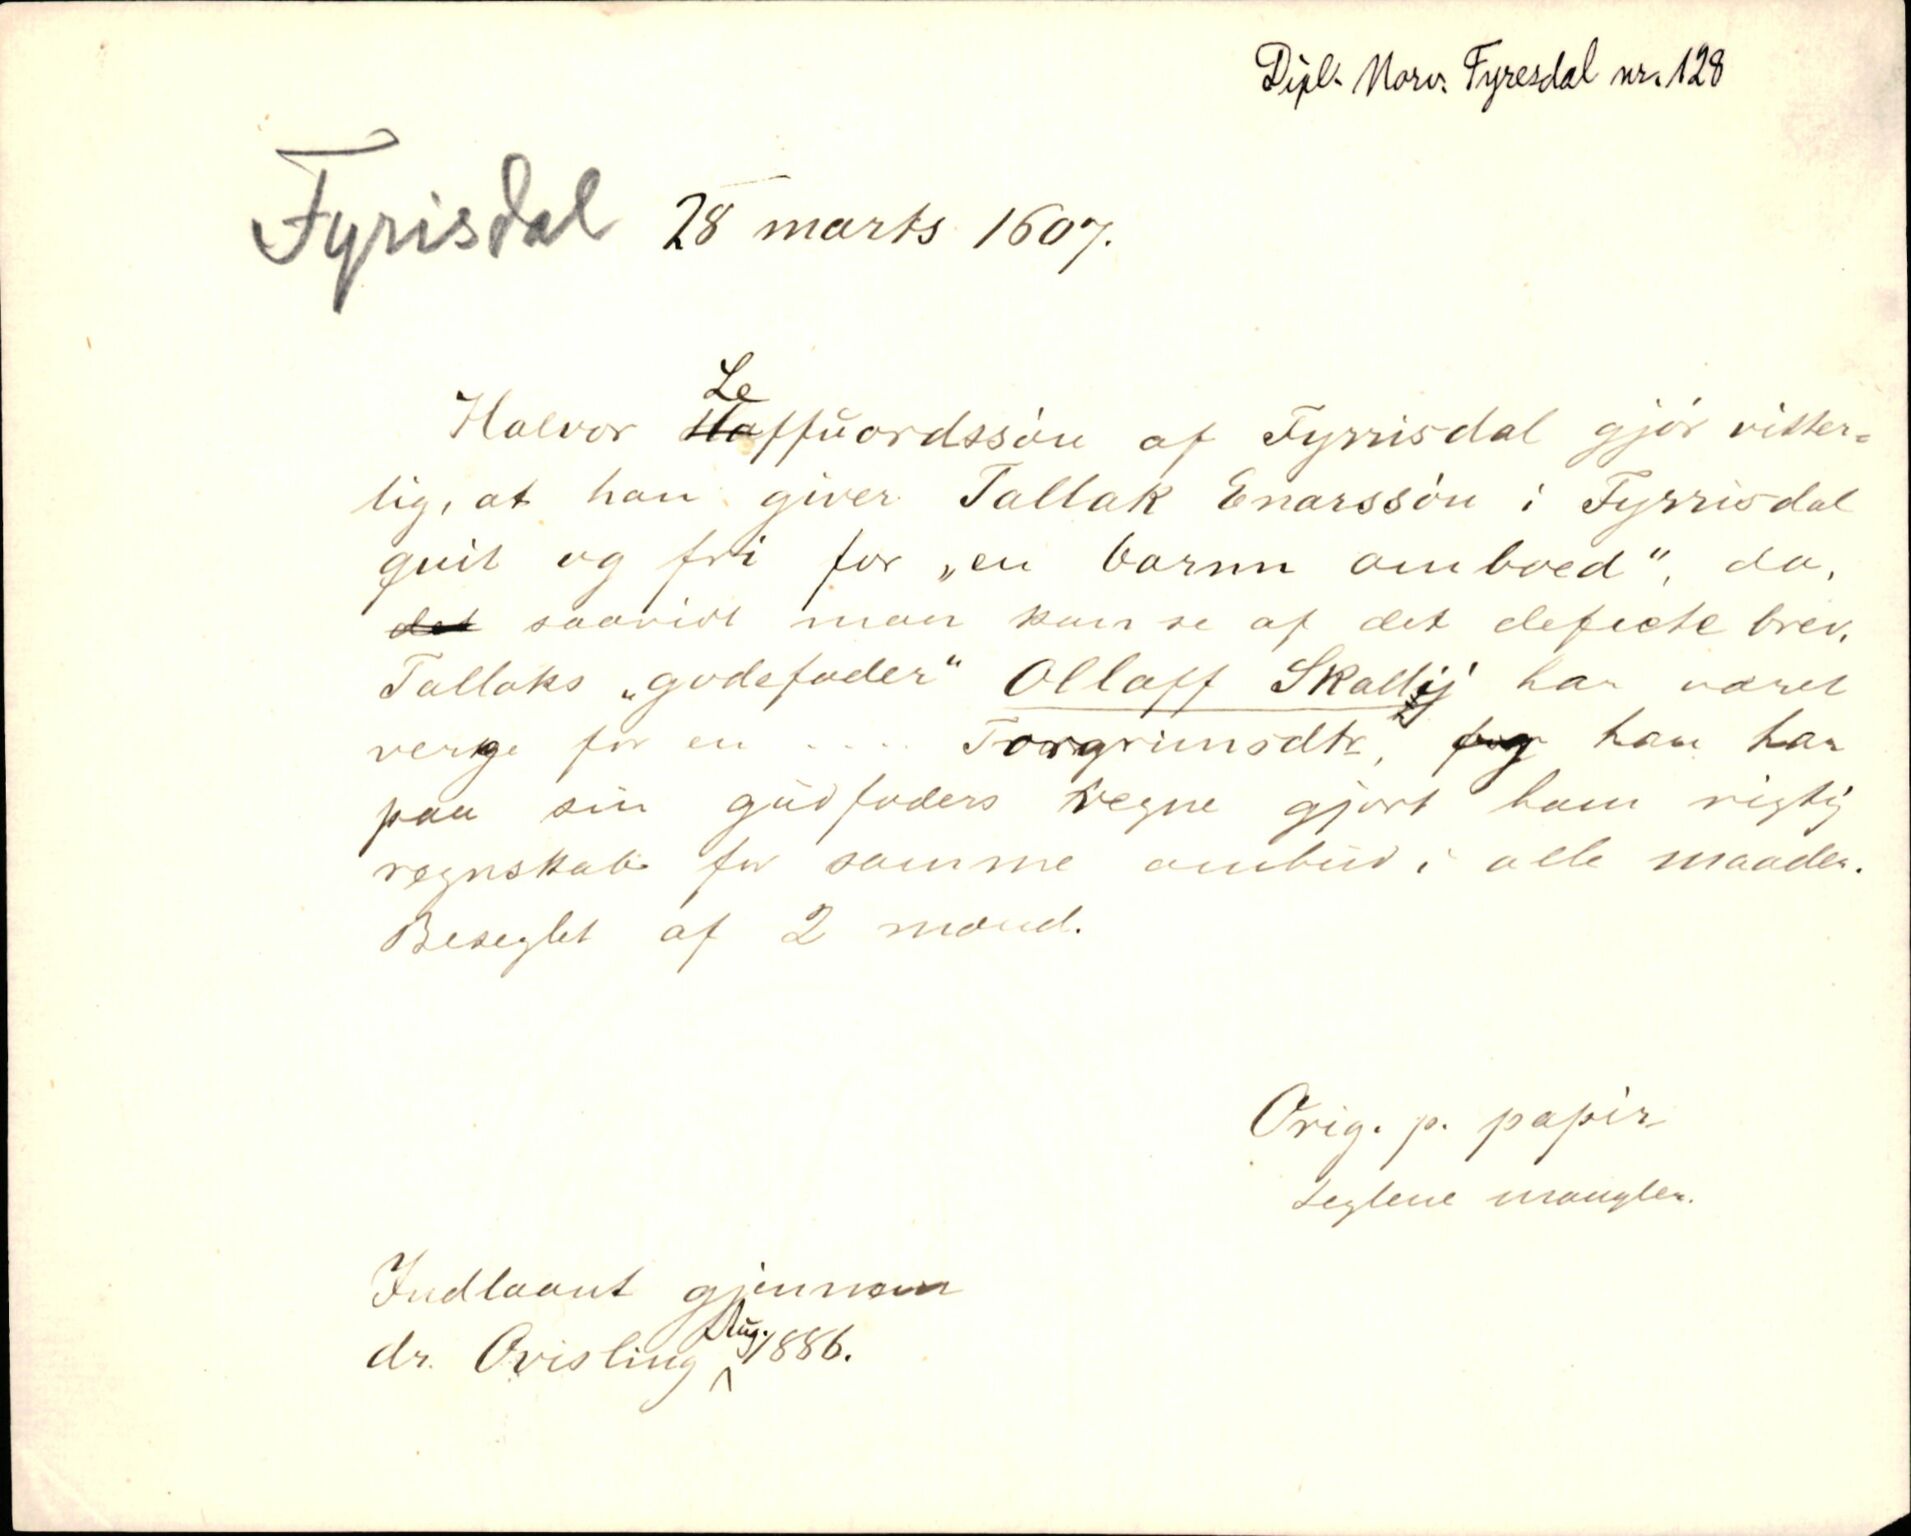 Dipl. Norv. Fyresdal nr. 128
Fyrisdal 28 marts 1607.
Le
Halvor Haffuordssøn af Fyrrisdal gjør vitter-
lig, at han giver Tallak Enarssøn i Fyrrisdal
quit og fri for „en barnn amboed“, da,
det saavidt man kan se af det defecte brev,
Tallaks „godefader“ Ollaff Skallij har været
verge for en .... Torgrimsdtr, og han har
paa sin gudfaders vegne gjort ham rigtig
regnskab for samme ombud i alle maader.
Beseglet af 2 mænd.
Orig. p. papir
Seglene mangler.
Indlaant gjennem
dr. Qvisling Aug. 1886.